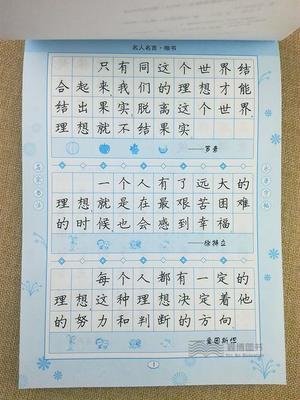 名人名言·楷书
只有同这个世界结
合起来我们的理想才能
结出果实脱离这个世界
理想就不结果实
——罗素
一个人有了远大的
理想就是在最艰苦困难
的时候也会感到幸福
——徐特立
每个人都有一定的
理想这种理想决定着他
的努力和判断的方向
爱因斯坦
1